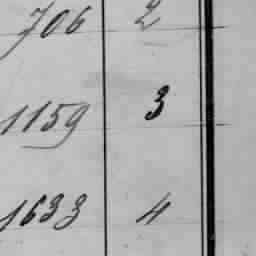 706 2
1159 3
1633 4